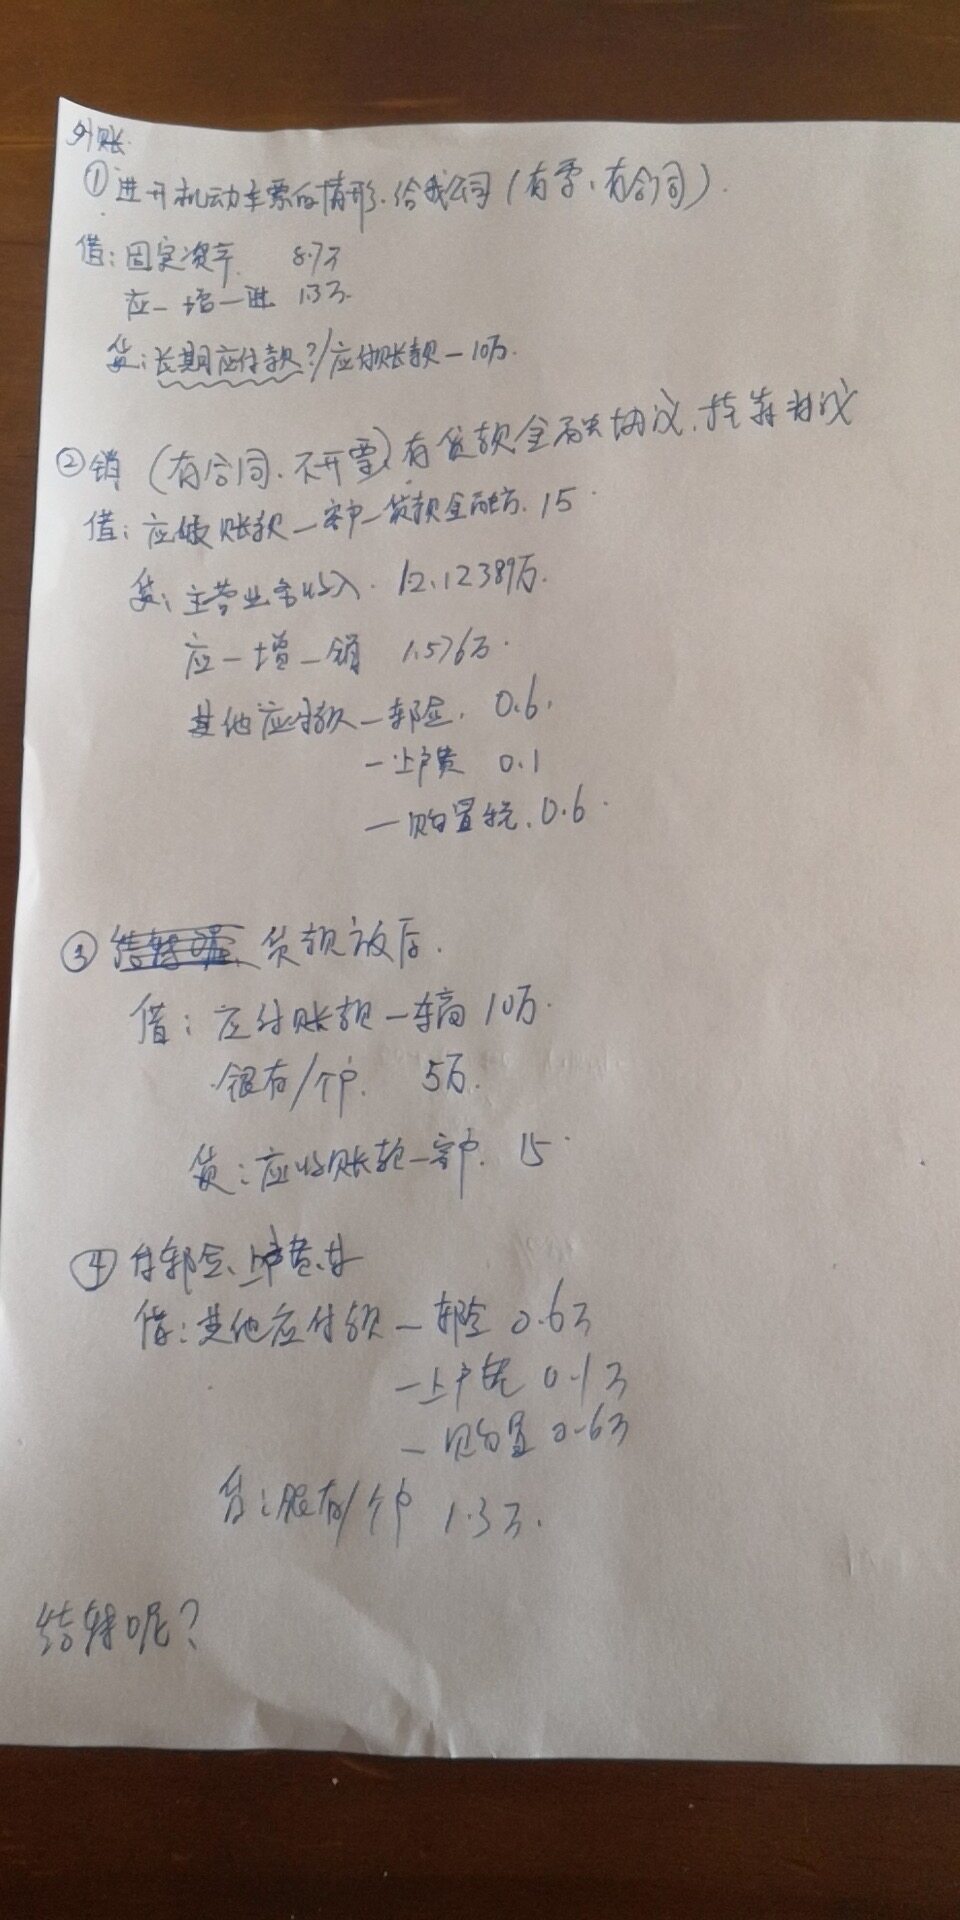 外账.
① 进开机动车票的情形. 给我公司 (有票、有合同).
借: 固定资产. 8.7万
应一增一进 1.3万.
贷: 长期应付款?/应付账款一10万.
② 销 (有合同、不开票) 有贷款金融协议. 挂靠协议
借: 应收账款一客户一贷款金融方. 15.
贷: 主营业务收入. 12.12389万.
应一增一销 1.576万.
其他应付款一车险. 0.6.
一上户费 0.1
一购置税. 0.6.
③ 贷款放后.
借: 应付账款一车商 10万.
银存/个户. 5万.
贷: 应收账款一客户. 15.
④ 付车险、上户费、
借: 其他应付款一车险 0.6万
一上户费 0.1万
一购置 0.6万
贷: 银存/个户 1.3万.
结转呢?